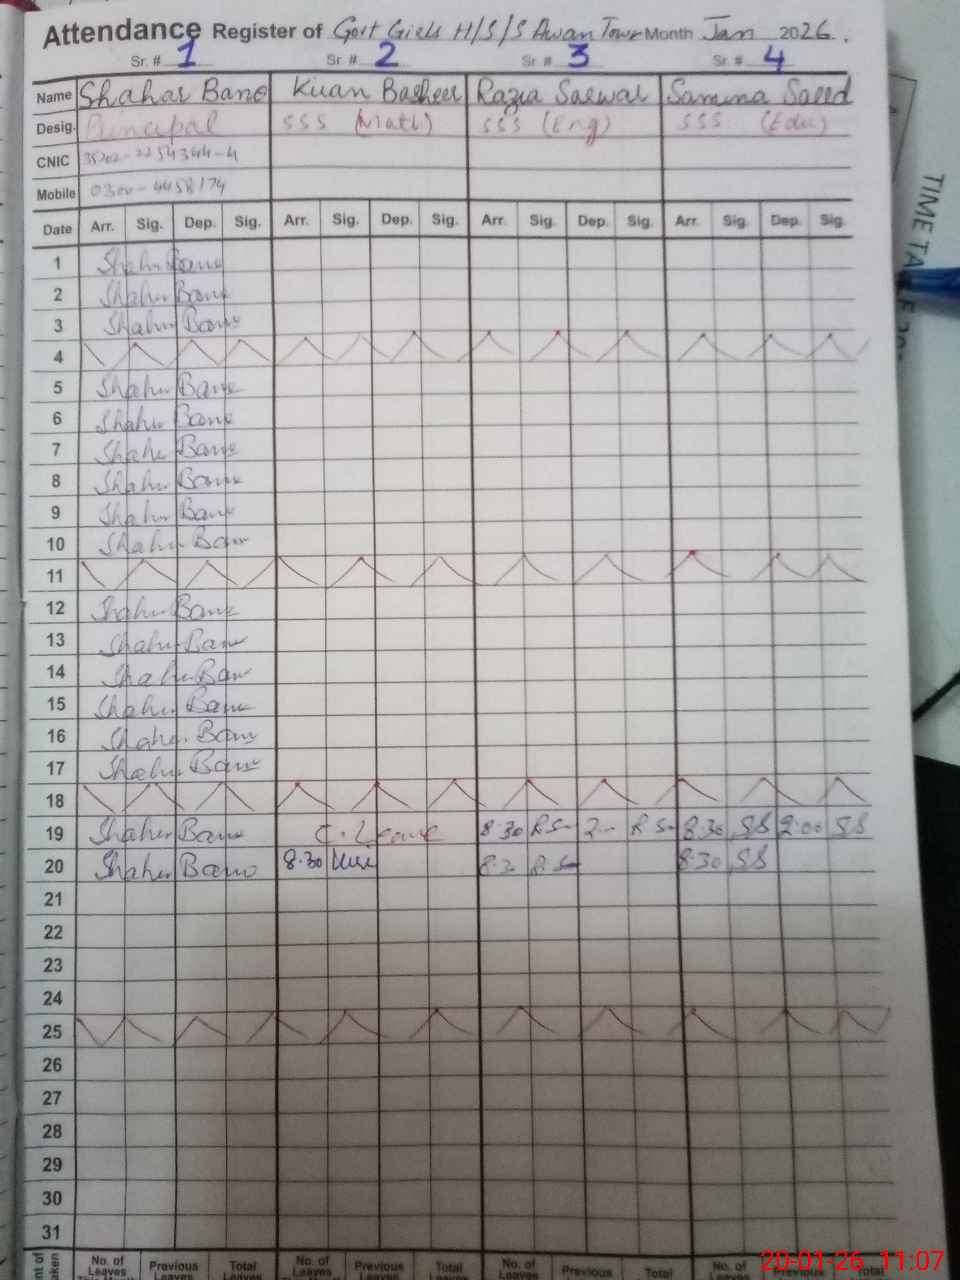 Attendance Register of Govt Girls H/S/S Awan Town Month Jan 2026.
Sr. # 1 Sr. # 2 Sr. # 3 Sr. # 4
Name Shahar Bano Kiran Basheer Razia Sarwar Samina Saeed
Desig. Principal SSS (Math) SSS (Eng) SSS (Edu)
CNIC
Mobile
Date Arr. Sig. Dep. Sig. Arr. Sig. Dep. Sig. Arr. Sig. Dep. Sig. Arr. Sig. Dep. Sig.
1 Shahar Bano
2 Shahar Bano
3 Shahar Bano
4
5 Shahar Bano
6 Shahar Bano
7 Shahar Bano
8 Shahar Bano
9 Shahar Bano
10 Shahar Bano
11
12 Shahar Bano
13 Shahar Bano
14 Shahar Bano
15 Shahar Bano
16 Shahar Bano
17 Shahar Bano
18
19 Shahar Bano C. Leave 8:30 R.S 2 R.S 8:30 SS 2:00 SS
20 Shahar Bano 8:30 8:30 R.S 8:30 SS
21
22
23
24
25
26
27
28
29
30
31
No. of Previous Total No. of Previous Total No. of Previous Total No. of Previous Total
Leaves Leaves Leaves Leaves Leaves Leaves
TIME TA
20-01-26 11:07